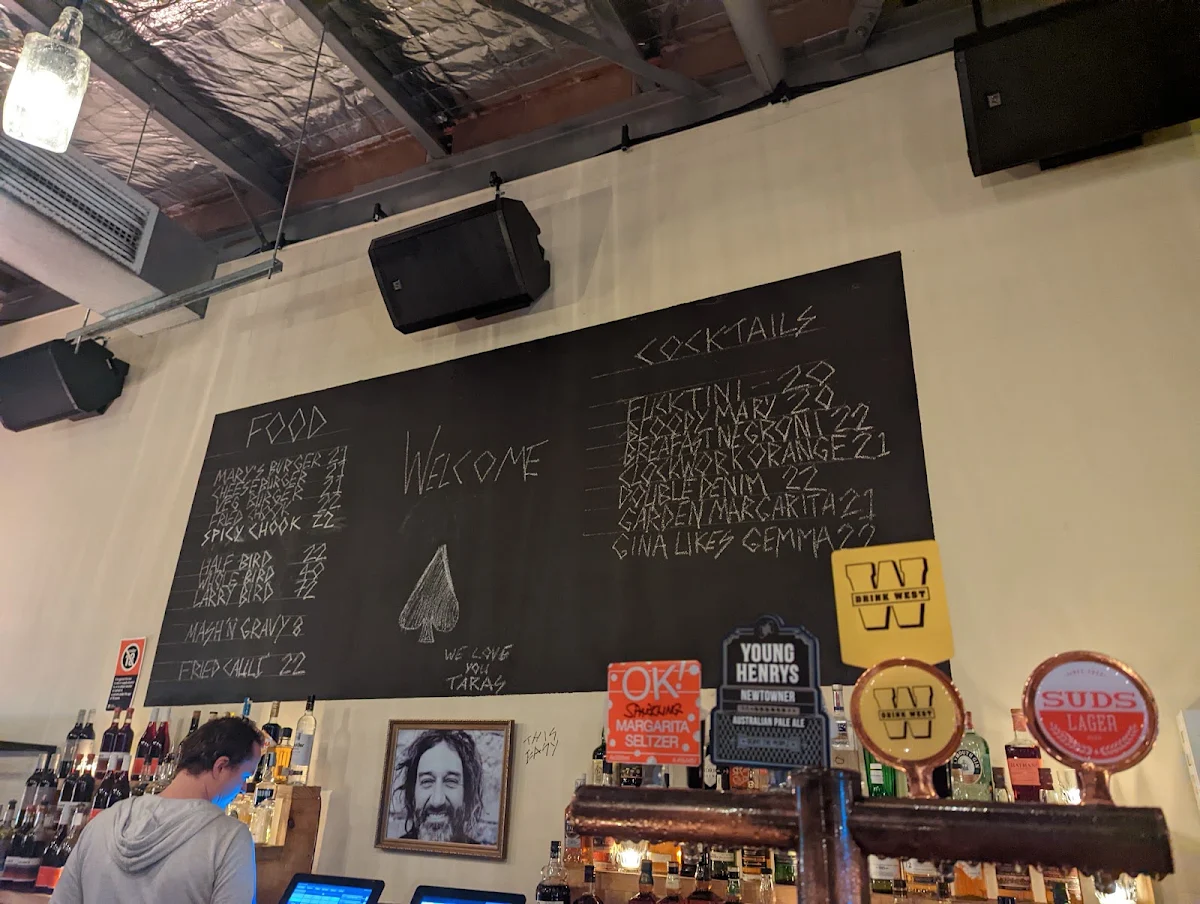 FOOD
MARY'S BURGER 21
CHEESEBURGER 21
VEG BURGER 22
FRIED
SPICY CHOOK 22
HALF BIRD 22
WHOLE BIRD 40
LARRY BIRD 72
MASH'N GRAVY 8
FRIED CAULI 22
WELCOME
WE LOVE
YOU
TARAS
COCKTAILS
FUCKTINI - 20
BLOODY MARY 20
BREAFAST NEGRONI 22
CLOCKWORK ORANGE 21
DOUBLE DENIM 22
GARDEN MARGARITA 21
GINA LIKES GEMMA 22
THIS
W
DRINK WEST
YOUNG
HENRYS
NEWTOWNER
AUSTRALIAN PALE ALE
OK!
SPARKLING
MARGARITA
SELTZER
W
DRINK WEST
SUDS
LAGER